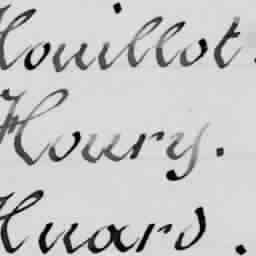 Houillot.
Houry.
Huard.